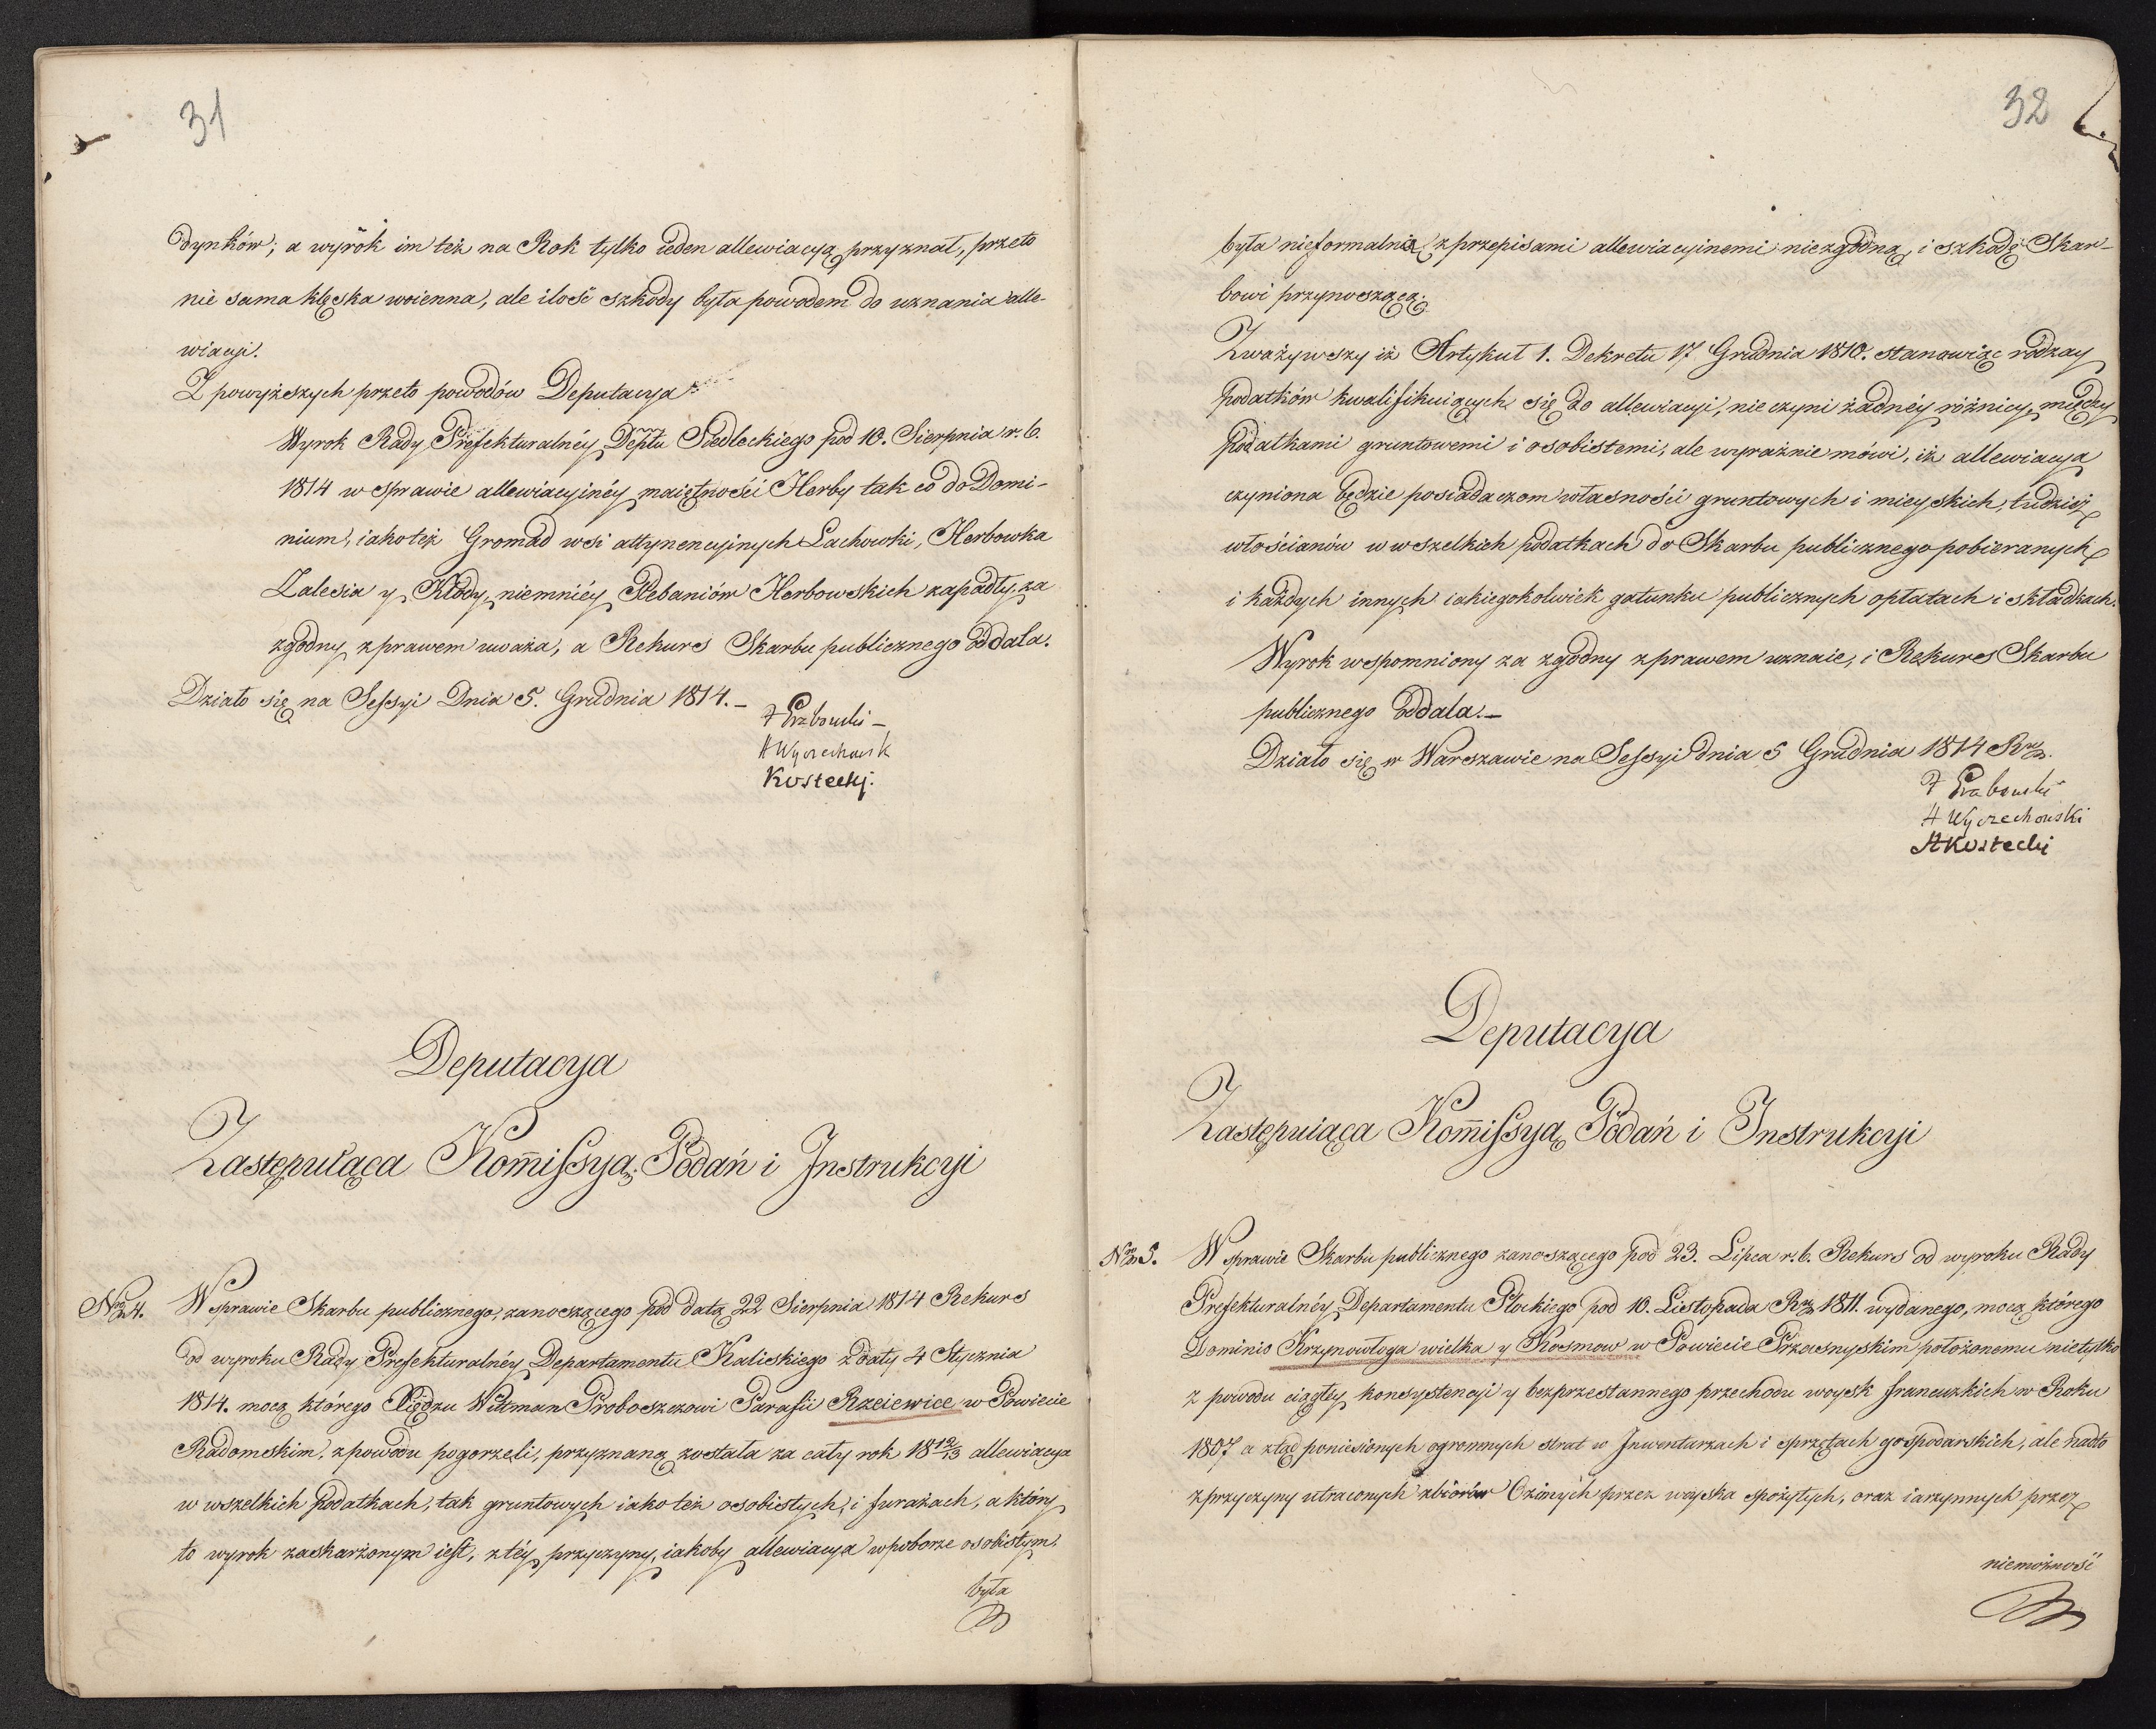 31
dynków; a wyrok im też na Rok tylko ieden allewiacyą przyznał, przeto
nie sama klęska woienna, ale ilość szkody była powodem do uznania alle-
wiacyi.
Z powyższych przeto powodów Deputacya
Wyrok Rady Prefekturalnéy Deptu Siedleckiego pod 10. Sierpnia r. b.
1814 w sprawie allewiacyinéy maiętności Horby tak co do Domi-
nium, iako też Gromad wsi attynencyinych Lachowki, Horbowka
Zalesia y Kłody, niemniéy Plebaniów Horbowskich zapadły, za
zgodny z prawem uważa, a Rekurs Skarbu publicznego oddala.
Działo się na Sessyi Dnia 5. Grudnia 1814. –
F Grabowski –
A Wyczechowsk
Kostecky.
Deputacya
Zastępuiąca Kom̄issyą Podań i Jnstrukcyi
Nro 4. W sprawie Skarbu publicznego, zanoszącego pod datą 22 Sierpnia 1814 Rekurs
od wyroku Rady Prefekturalnéy Departamentu Kaliskiego z daty 4 Stycznia
1814. mocą którego Xiędzu Wittman Proboszczowi Parafii Rzeiewice w Powiecie
Radomskim, z powodu pogorzeli, przyznaną została za cały rok 1812/13 allewiacya
w wszelkich Podatkach, tak gruntowych iako też osobistych, i furażach, a który
to wyrok zaskarżonym iest, z téy przyczyny, iakoby allewiacya w poborze osobistym.
była
32
była nieformalnią z przepisami allewiacyinemi niezgodną, i szkodę Skar-
bowi przynoszącą.
Zważywszy iż Artykuł 1. Dekretu 17 Grudnia 1810. stanowiąc rodzay
podatków kwalifikuiących się do allewiacyi, nie czyni żadnéy różnicy, między
Podatkami gruntowemi i osobistemi, ale wyraźnie mówi, iż allewiacya
czyniona będzie posiadaczom własności gruntowych i mieyskich, tudzież
włościanów w wszelkich podatkach do Skarbu publicznego pobieranych
i każdych innych iakiegokolwiek gatunku publicznych opłatach i składkach.
Wyrok wspomniony za zgodny z prawem uznaie, i Rekurs Skarbu
publicznego oddala. –
Działo się w Warszawie na Sessyi dnia 5 Grudnia 1814 Rku.
F Grabowski
A Wyczechowski
A Kostecki
Deputacya
Zastępuiąca Kom̄issyą Podań i Instrukcyi
Nro 5. W sprawie Skarbu publicznego zanoszącego pod 23. Lipca r. b. Rekurs od wyroku Rady
Prefekturalnéy Departamentu Płockiego pod 10. Listopada Rku 1811. wydanego, mocą którego
Dominio Krzynowłoga wielka y Kosmow w Powiecie Przasnyskim położonemu nietylko
z powodu ciągłéy konsystencyi y bezprzestannego przechodu woysk francuzkich w Roku
1807 a ztąd poniesionych ogromnych strat w Jnwentarzach i sprzętach gospodarskich, ale nadto
z przyczyny utraconych zbiorów Ozimych przez woyska spożytych, oraz iarzynnych przez
niemożność